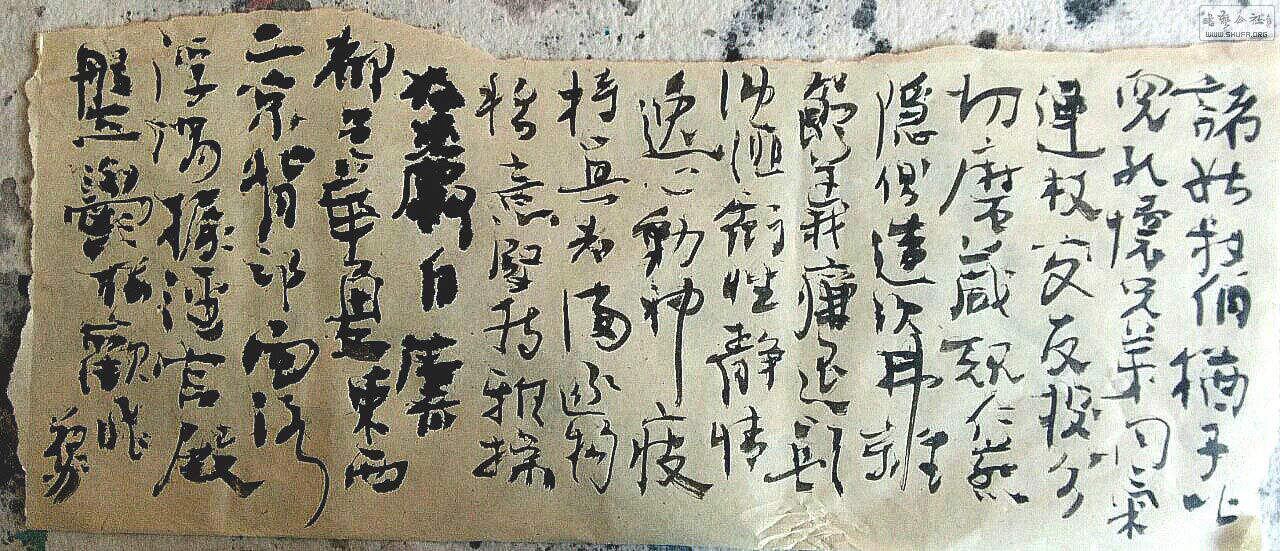 諸姑叔伯猶子比
兒孔懷兄弟同氣
連枝交友投分
切磨箴規仁慈
隱惻造次弗離
節義廉退顛
沛匪虧性静情
逸心動神疲
持真志滿逐物
移意堅持雅操
爵自縻
都邑華夏東西
二京背邙面洛
浮渭據涇宮殿
盤鬱樓觀飛
驚
WWW.SHUFA.ORG